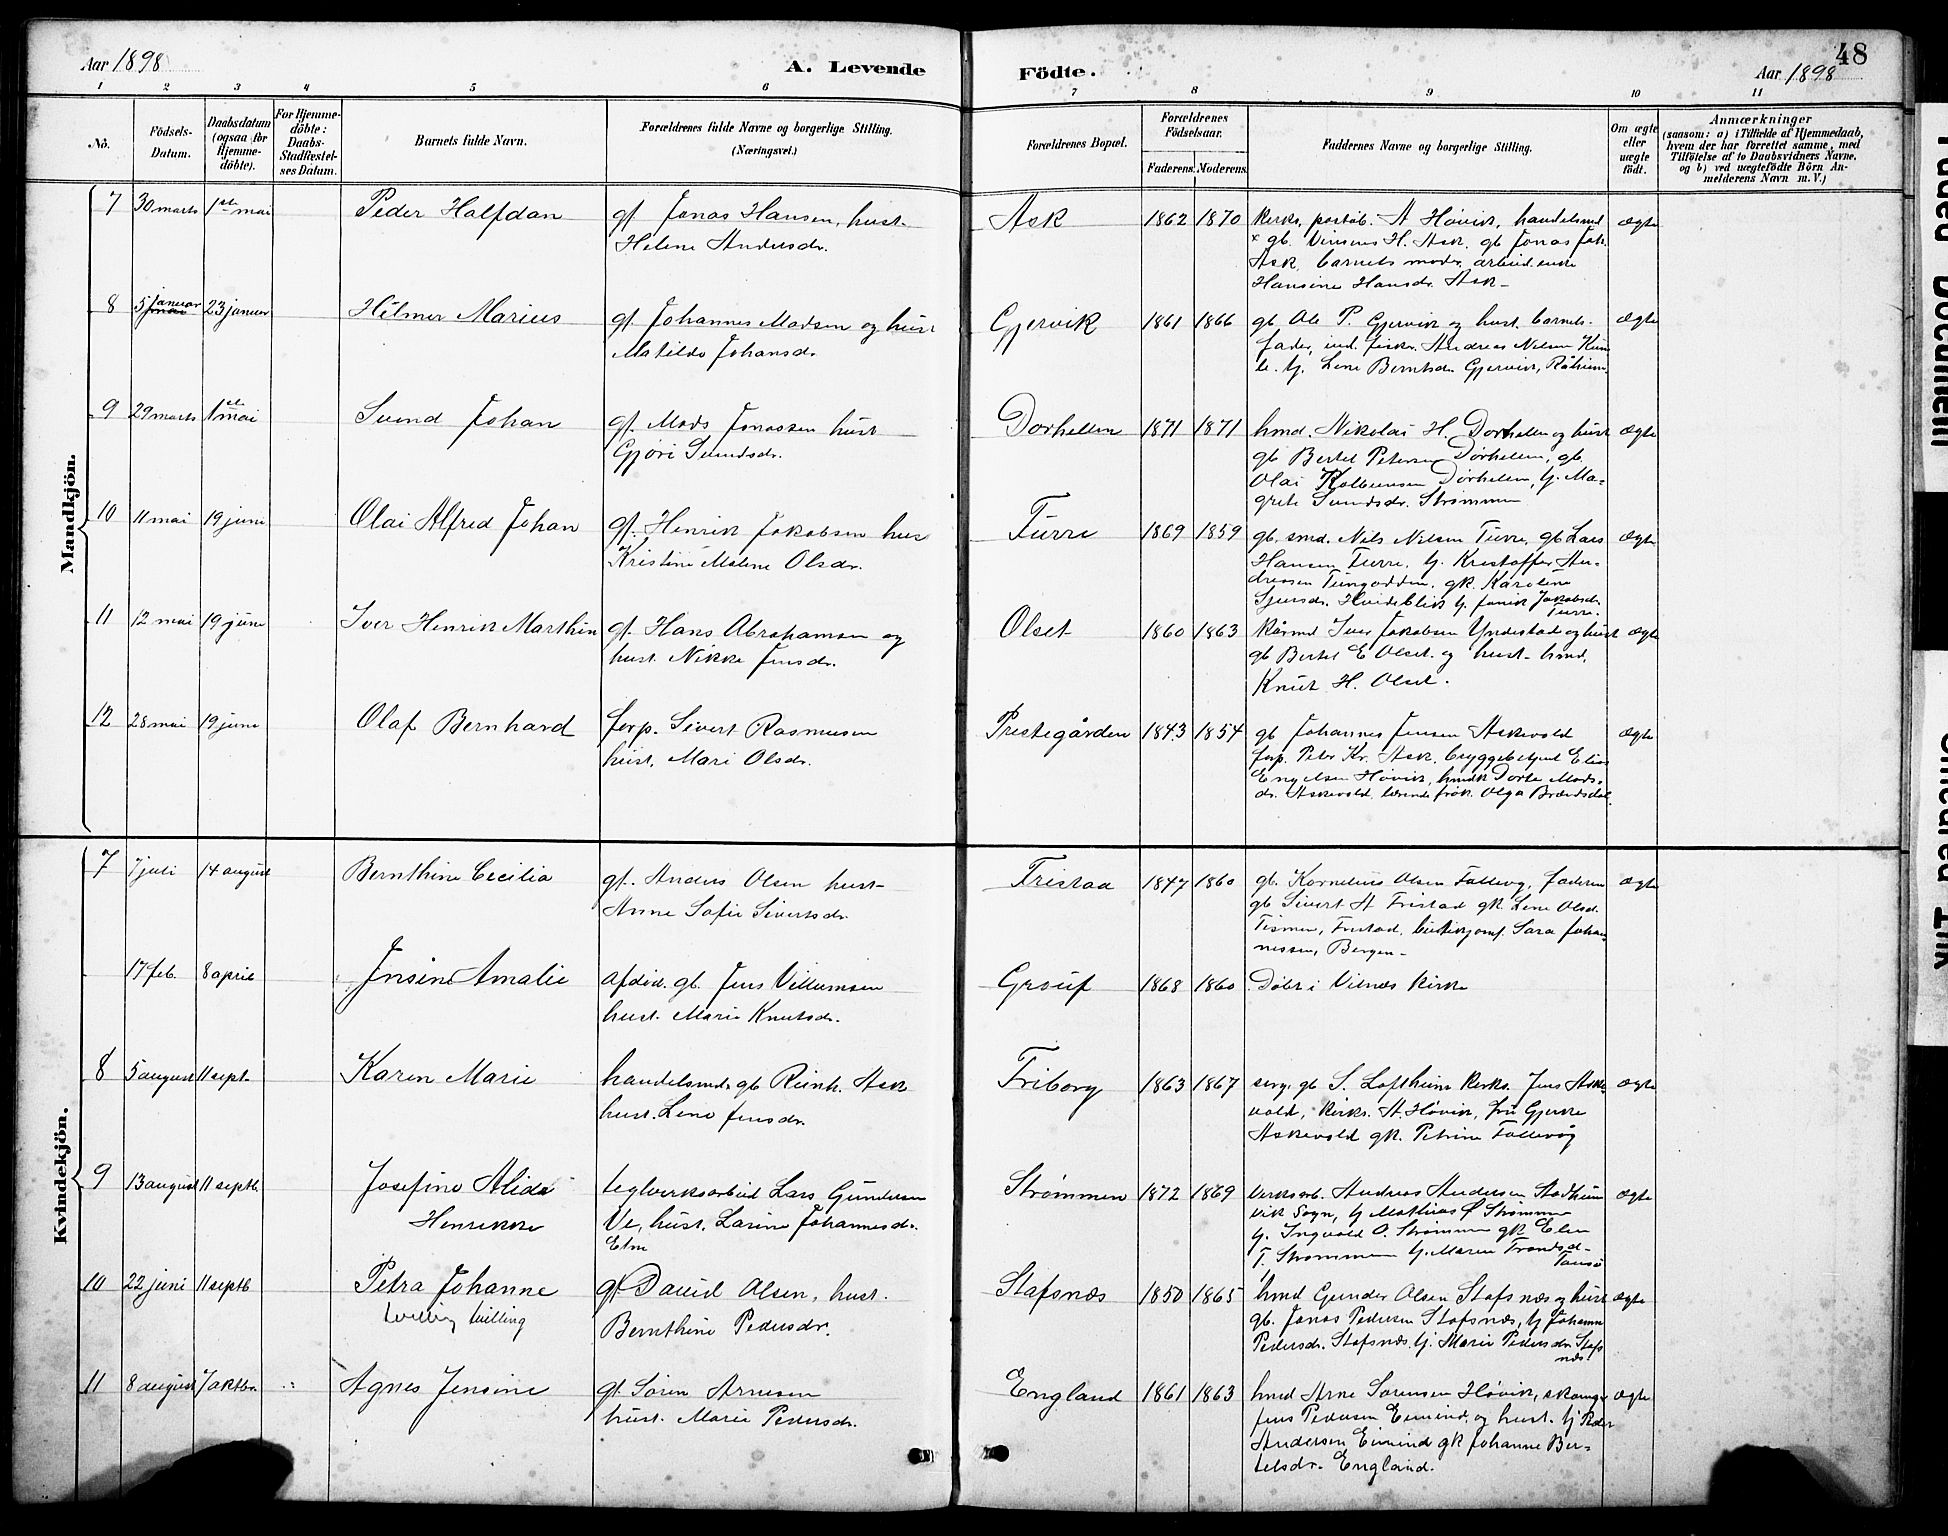 Aar 1898
A. Levende
Födte.
48
Aar 1898
1 2 3 4 5 6 7 8 9 10 11
No.
Födsels-
Datum.
Daabsdatum
(ogsaa for
Hjemme-
döbte).
For Hjemme-
döbte:
Daabs-
Stadfæstel-
ses Datum.
Barnets fulde Navn.
Forældrenes fulde Navne og borgerlige Stilling.
(Næringsvei.)
Forældrenes Bopæl.
Forældrenes
Födselsaar.
Faderens. Moderens.
Faddernes Navne og borgerlige Stilling.
Om ægte
eller
uægte
födt.
Anmærkninger
(saasom: a) i Tilfælde af Hjemmedaab,
hvem der har forrettet samme, med
Tilföielse af to Daabsvidners Navne,
og b) ved uægtefödte Börn An-
melderens Navn m. V.)
Mandkjön.
7 30 marts 1ste mai Peder Halfdan gf. Jonas Hansen, hust.
Helene Andersdr.
Ask 1862 1870 Kirks. A Høvik, handelsmd
H. Ask, gb Jonas Joh.
Ask, barnets moder,
Hansine Hansdr. Ask
ægte
8 5 januar 23 januar Hilmer Marius gf. Johannes Madsen og hust
Matilde Johansdr.
Gjervik 1861 1866 gb Ole P. Gjervik og hust. barnets
fader, ind. fisker Andreas Nilsen
Lene Berntsdr Gjervik,
ægte
9 29 marts 1ste mai Svend Johan gf. Mads Jonassen hust
Gjøri Svendsdr.
Dorhellen 1871 1871 hmd. Nikolai H. Dorhellen og hust
gb Bertel Petersen Dorhellen, gb.
Olai Dorhellen, tj. Ma-
grete Svendsdr. Strømmen
ægte
10 11 mai 19 juni Olai Alfred Johan gf. Henrik Jakobsen hus
Kristine Malene Olsdr.
Furre 1869 1859 gb. smd. Nils Nilsen Furre, gb Lars
Hansen Furre, tj. Kristoffer An-
dreasen Tungodden, gk. Karoline
Sjursdr. tj. Jakobsdr.
Furre.
ægte
11 12 mai 19 juni Iver Henrik Marthin gf. Hans Abrahamsen og
hust. Nikka Jensdr.
Olset 1860 1863 kårmd Iver Jakobsen Yndestad og hust
gb Bertel E Olset og hust. hmd.
Knut H. Olset.
ægte
12 28 mai 19 juni Olaf Bernhard forp. Sivert Rasmusen
hust. Mari Olsdr.
Prestegården 1843 1854 gb Johannes Jensen Askevold
forp. Peter Kr. Ask, Elias
Engelsen Høvik, hmdk Dorte Mads-
dr. Askevold, frøk. Olga Brændsdal.
ægte
Kvindekjön.
7 7 juli 14 august Bernthine Cecilia gf. Anders Olsen hust
Anne Sofie Sivertsdr.
Fristad 1847 1860 gb. Kornelius Olsen Fallevog, faderen
gb Sivert A Fristad gk. Lene Olsd.
Fristad, Sara Johan-
nessen, Bergen
ægte
17 feb. 8 april Jnsine Amalie afdød. gb. Jens Villumsen
hust. Marie Knutsdr.
Grouf 1868 1860 Døbt i Vilnes Kirke
8 5 august 11 sept. Karen Marie handelsmd. gb Reinh. Ask
hust. Line Jensdr.
Friborg 1863 1867 serg. gb S. Loftheim Kirks. Jens Aske-
vold, Kirks. A. Høvik, fru Gjerke
Askevold gk. Petrine Fallevåg
ægte
9 13 august 11 septb. Josefine Alida
Henrikke
teglverksarbeid Lars Gundersen
Ve, hust. Larine Johannesdr.
Strømmen 1872 1869 Verksarb. Andreas Andersen
Sogn, tj Mathias Strømmen
tj. Ingvald O. Strømmen gk Elen
T. Strømmen tj. Maren
ægte
10 22 juni 11 septb Petra Johanne
tvilling
gf David Olsen, hust.
Bernthine Pedersdr.
Stafsnæs 1850 1865 hmd Gunder Olsen Stafsnæs og hust
gb. Jonas Pedersen Stafsnæs, tj Johanne
Pedersdr. Stafsnæs, tj. Marie Pedersdr Stafs
næs.
ægte
11 8 august 7 oktbr. Agnes Jensine gf. Søren Arnesen
hust. Marie Pedersdr.
England 1861 1863 hmd Arne Sørensen Høvik,
Jens Pedersen Eimind, og hust. tj Peder
Andersen Eimind gk Johanne Ber-
telsdr. England.
ægte